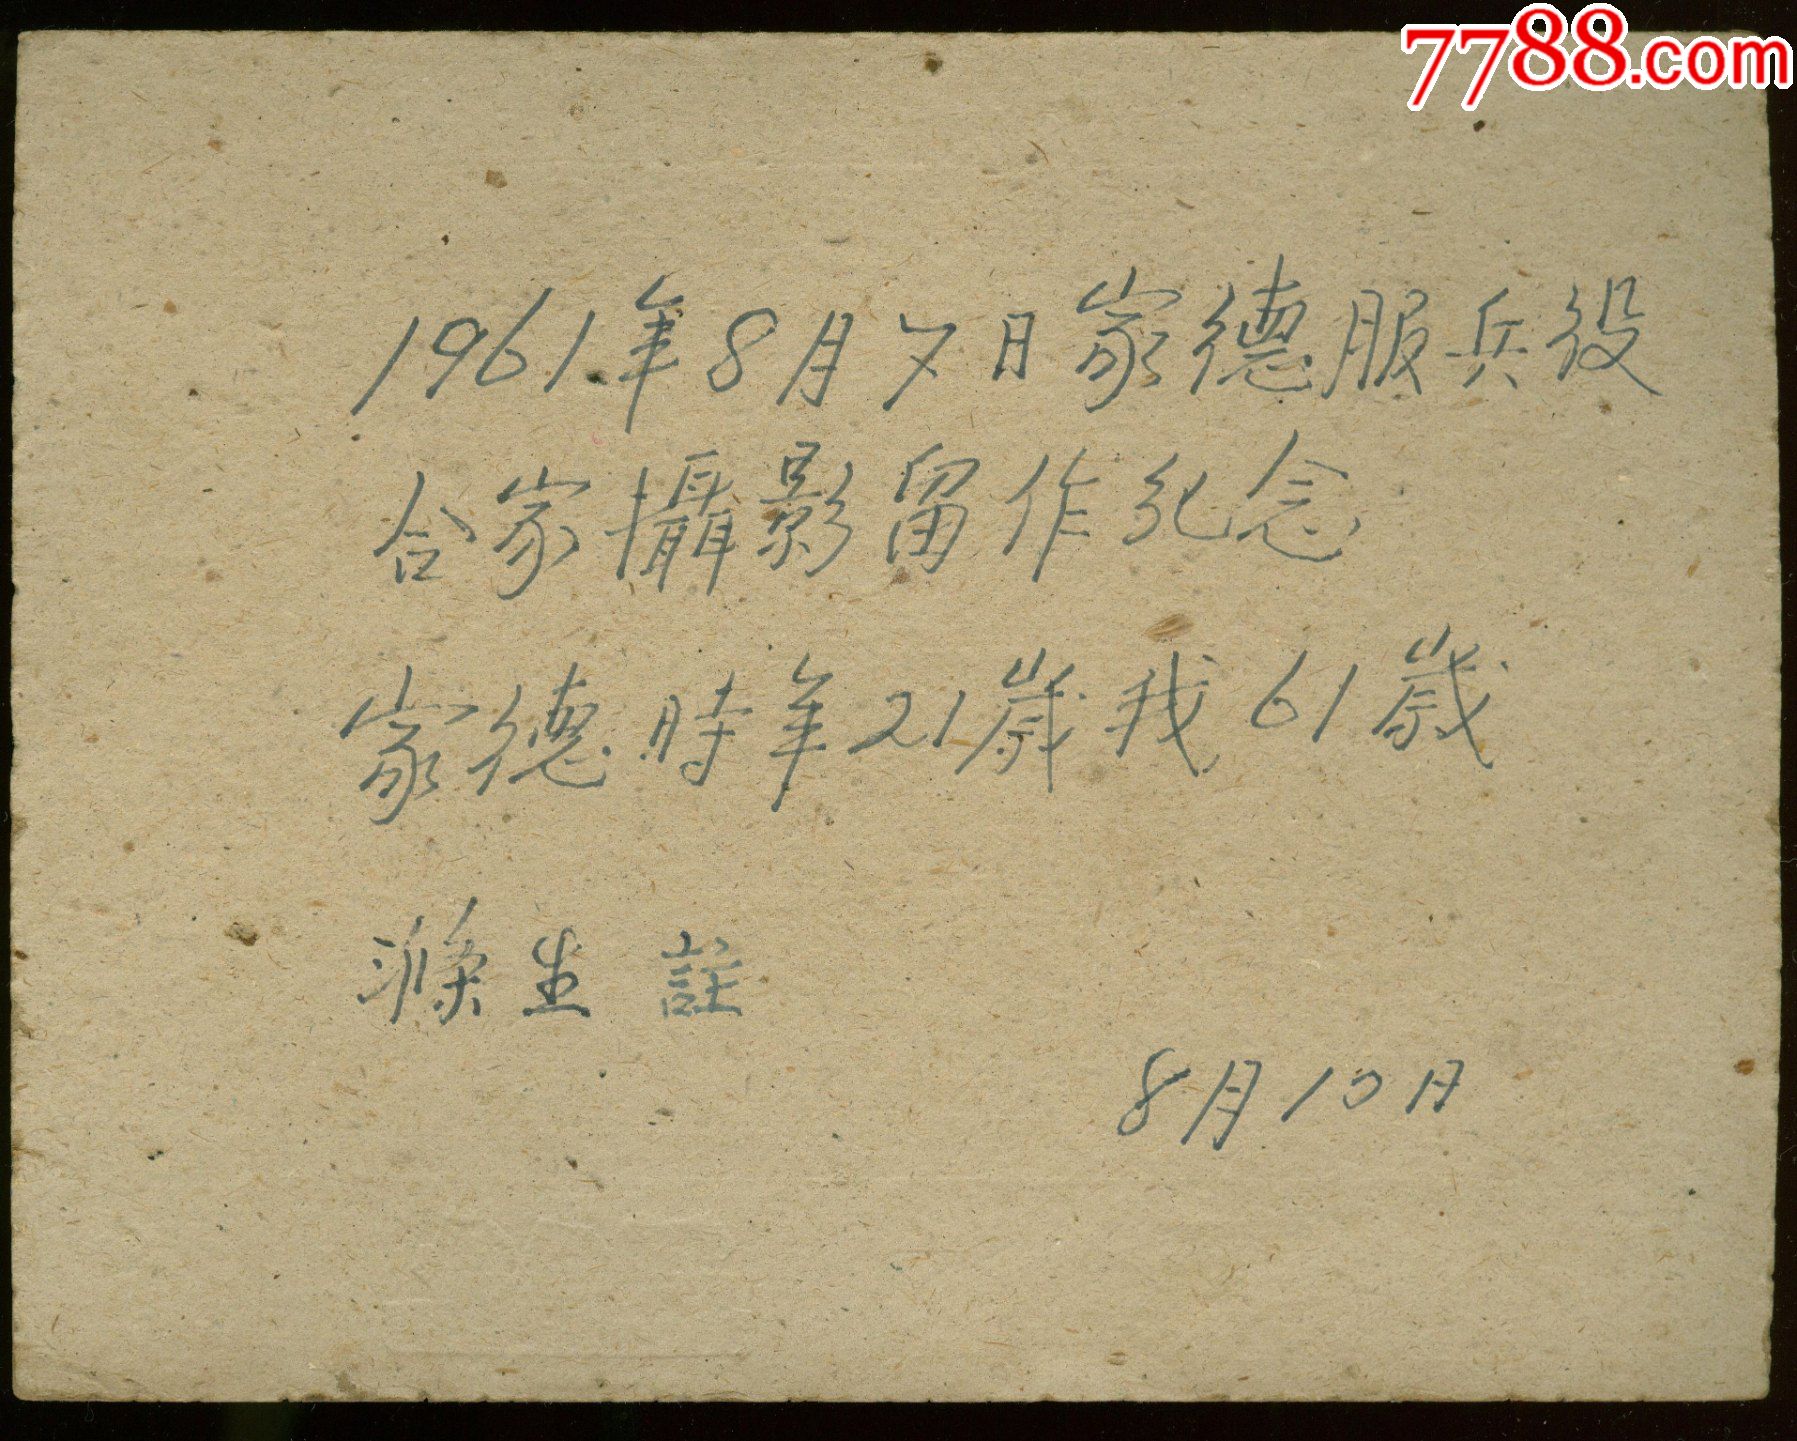 7788.com
1961年8月7日家德服兵役
合家攝影留作紀念
家德時年21歲我61歲
滌生 註
8月10日